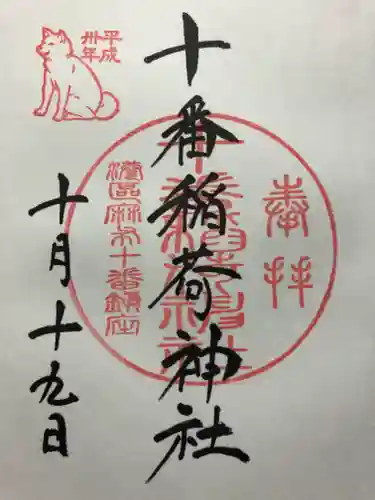 奉拝
十番稲荷神社
港區麻布十番鎮座
平成
卅年
十番稲荷神社
十月十九日